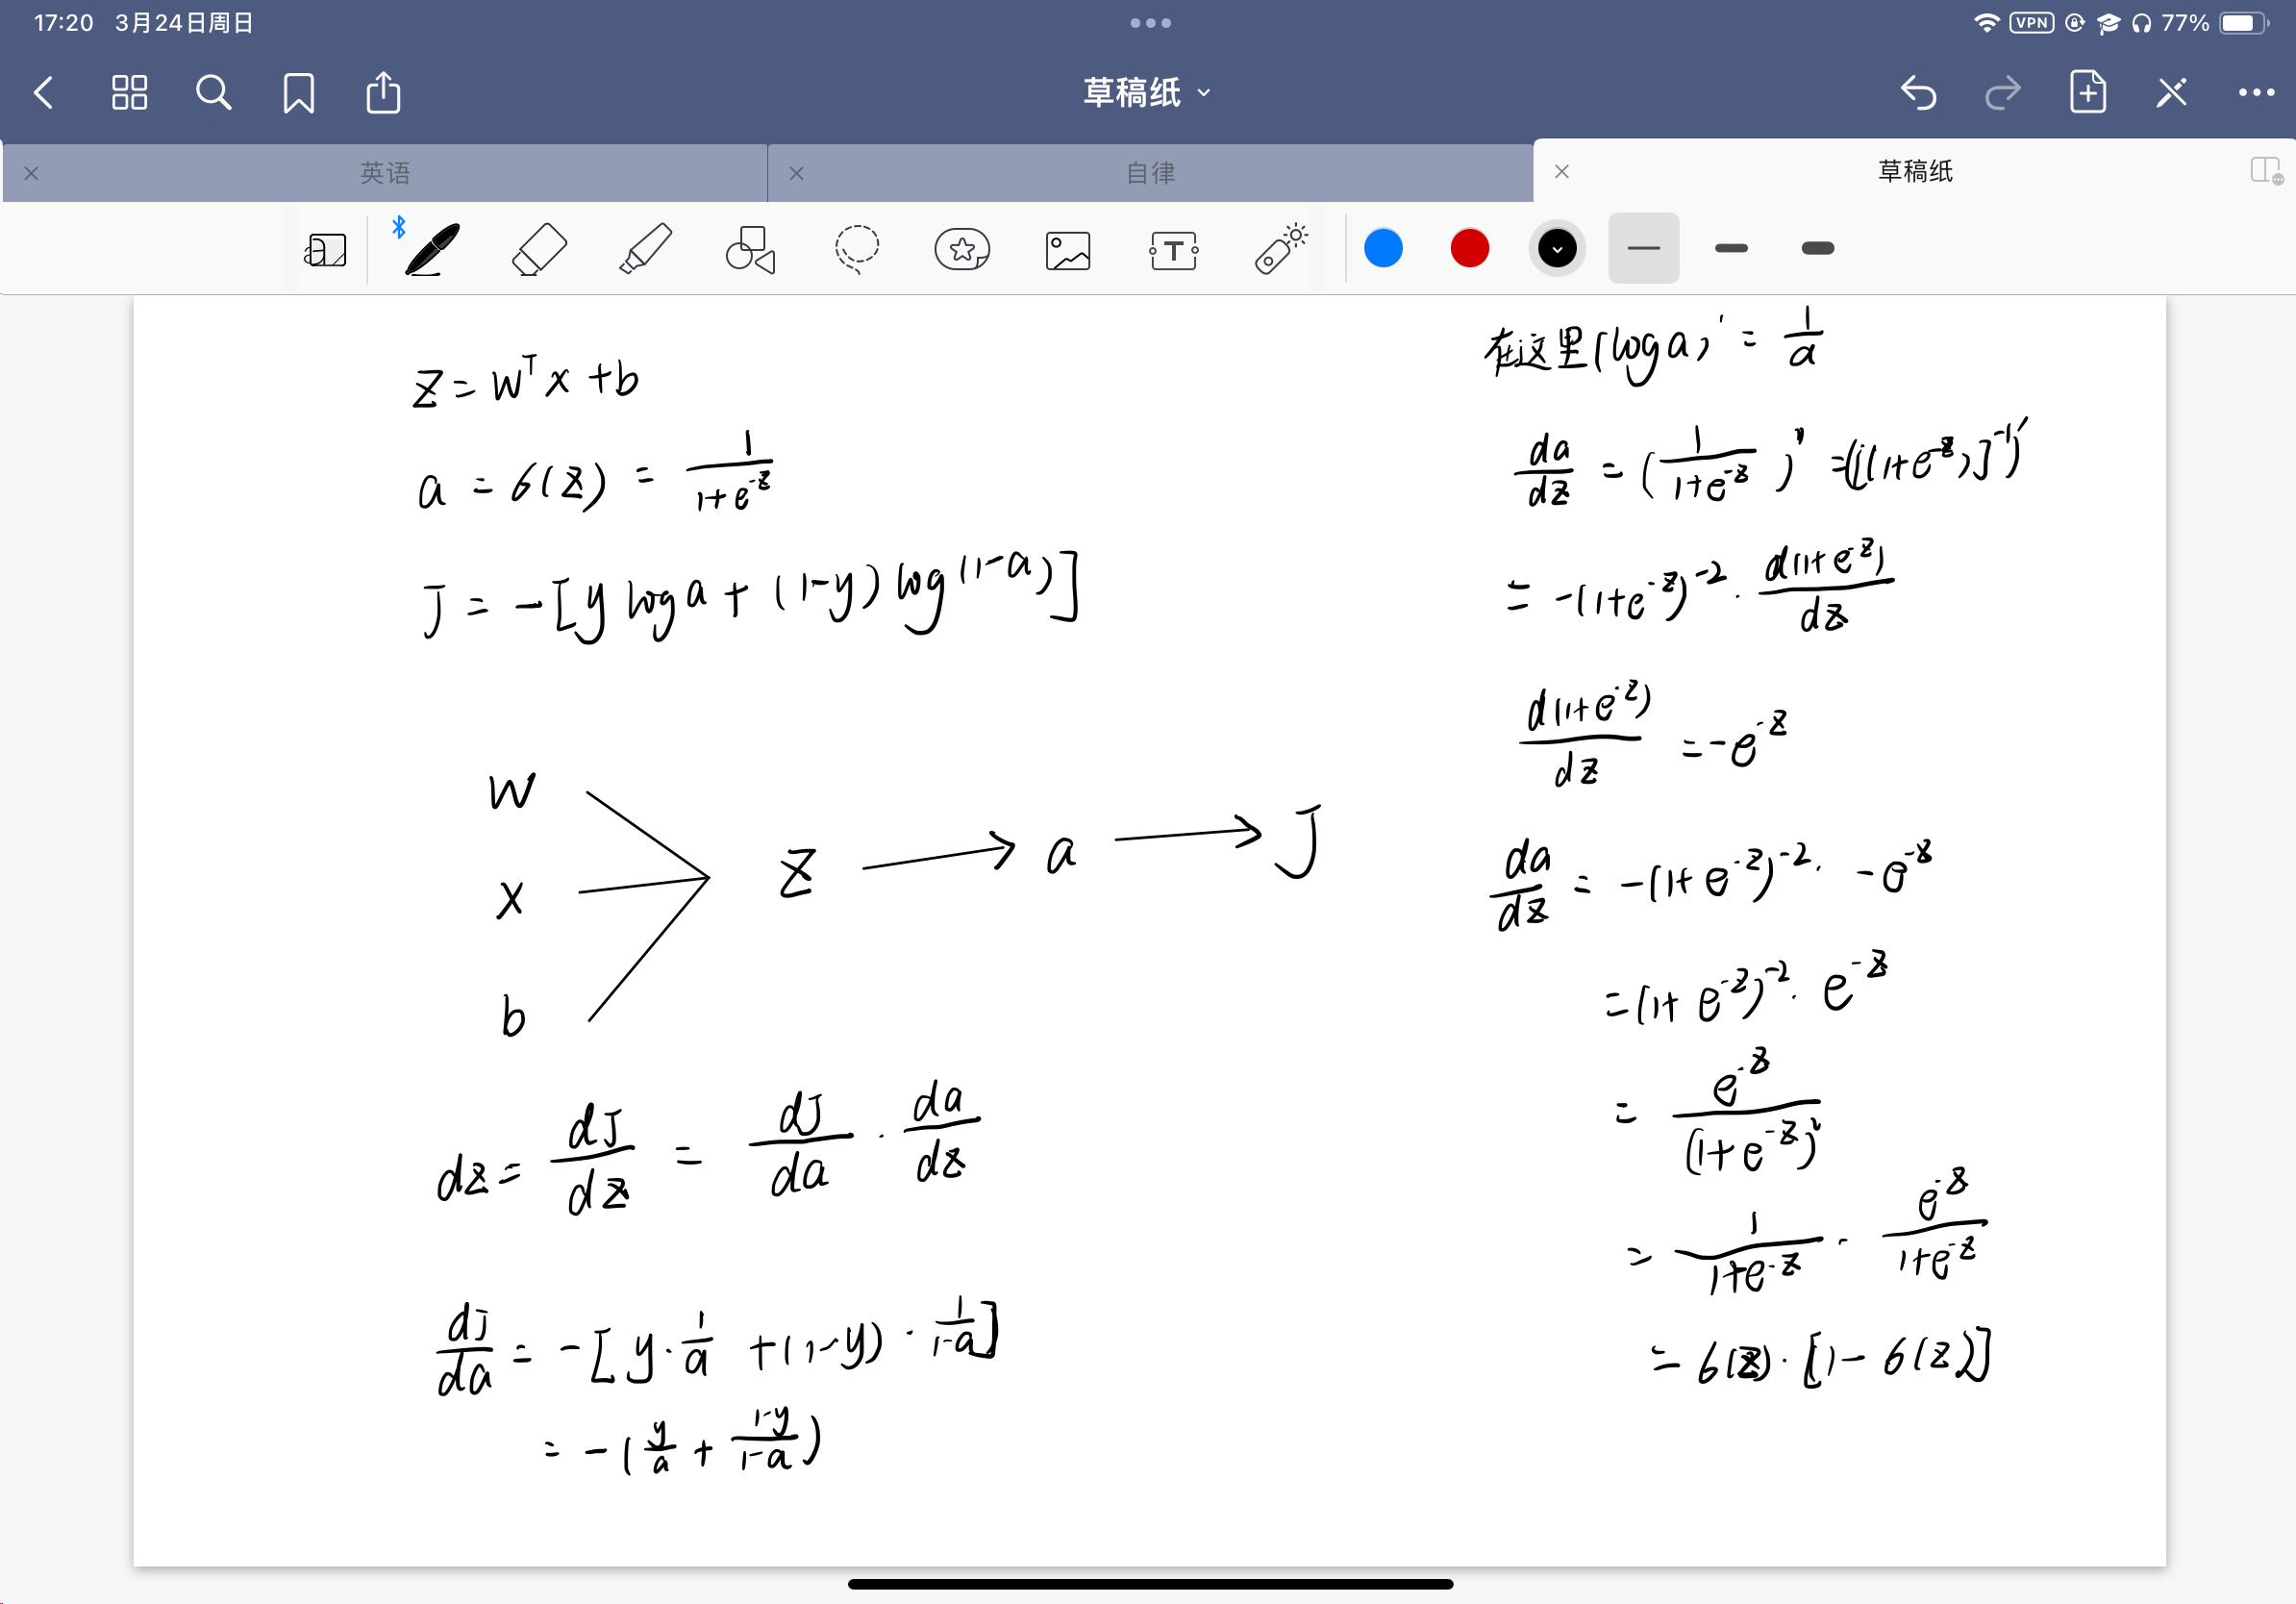 17:20 3月24日周日
VPN 77%
草稿纸
英语
自律
草稿纸
T
z = w^T x + b
a = 6(z) = 1/(1+e^-z)
J = -[y log a + (1-y) log(1-a)]
w
x
b
z → a → J
dz = dJ/dz = dJ/da · da/dz
dJ/da = -[y·1/a + (1-y)·1/(1-a)]
= -(y/a + (1-y)/(1-a))
在这里(log a)' = 1/a
da/dz = (1/(1+e^-z))' = ([(1+e^-z)]^-1)'
= -(1+e^-z)^-2 · d(1+e^-z)/dz
d(1+e^-z)/dz = -e^-z
da/dz = -(1+e^-z)^-2 · -e^-z
= (1+e^-z)^-2 · e^-z
= e^-z/(1+e^-z)^2
= 1/(1+e^-z) · e^-z/(1+e^-z)
= 6(z)·[1-6(z)]